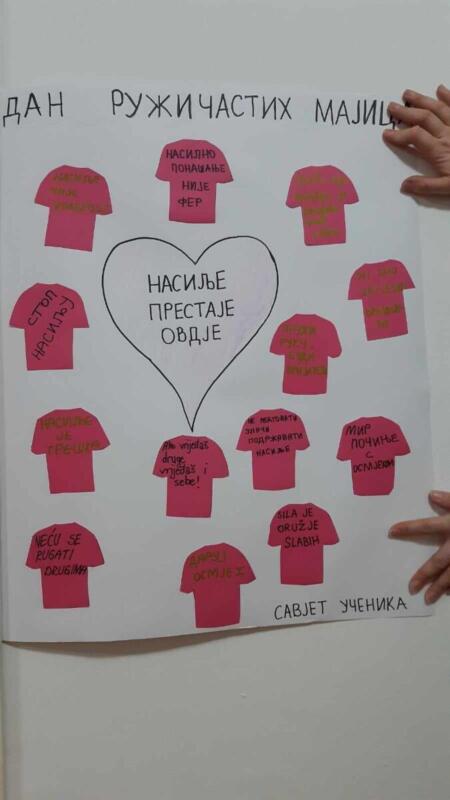 ДАН РУЖИЧАСТИХ МАЈИЦА
НАСИЛНО
ПОНАШАЊЕ
НИЈЕ
ФЕР
НАСИЉЕ
НИЈЕ
НАСИЉЕ
ПРЕСТАЈЕ
ОВДЈЕ
СТОП
НАСИЉУ
РУКУ,
БУДИ
НАСИЉЕ
ЈЕ
ГРЕШКА
Ako vrijeđaš
druge,
vrijeđaš i
sebe!
НЕ РЕАГОВАТИ
ЗНАЧИ
ПОДРЖАВАТИ
НАСИЉЕ
МИР
ПОЧИЊЕ
С
ОСМЈЕХОМ
NEĆU SE
RUGATI
DRUGIMA
ДАРУЈ
ОСМЈЕХ
SILA JE
ORUŽJE
SLABIH
САВЈЕТ УЧЕНИКА